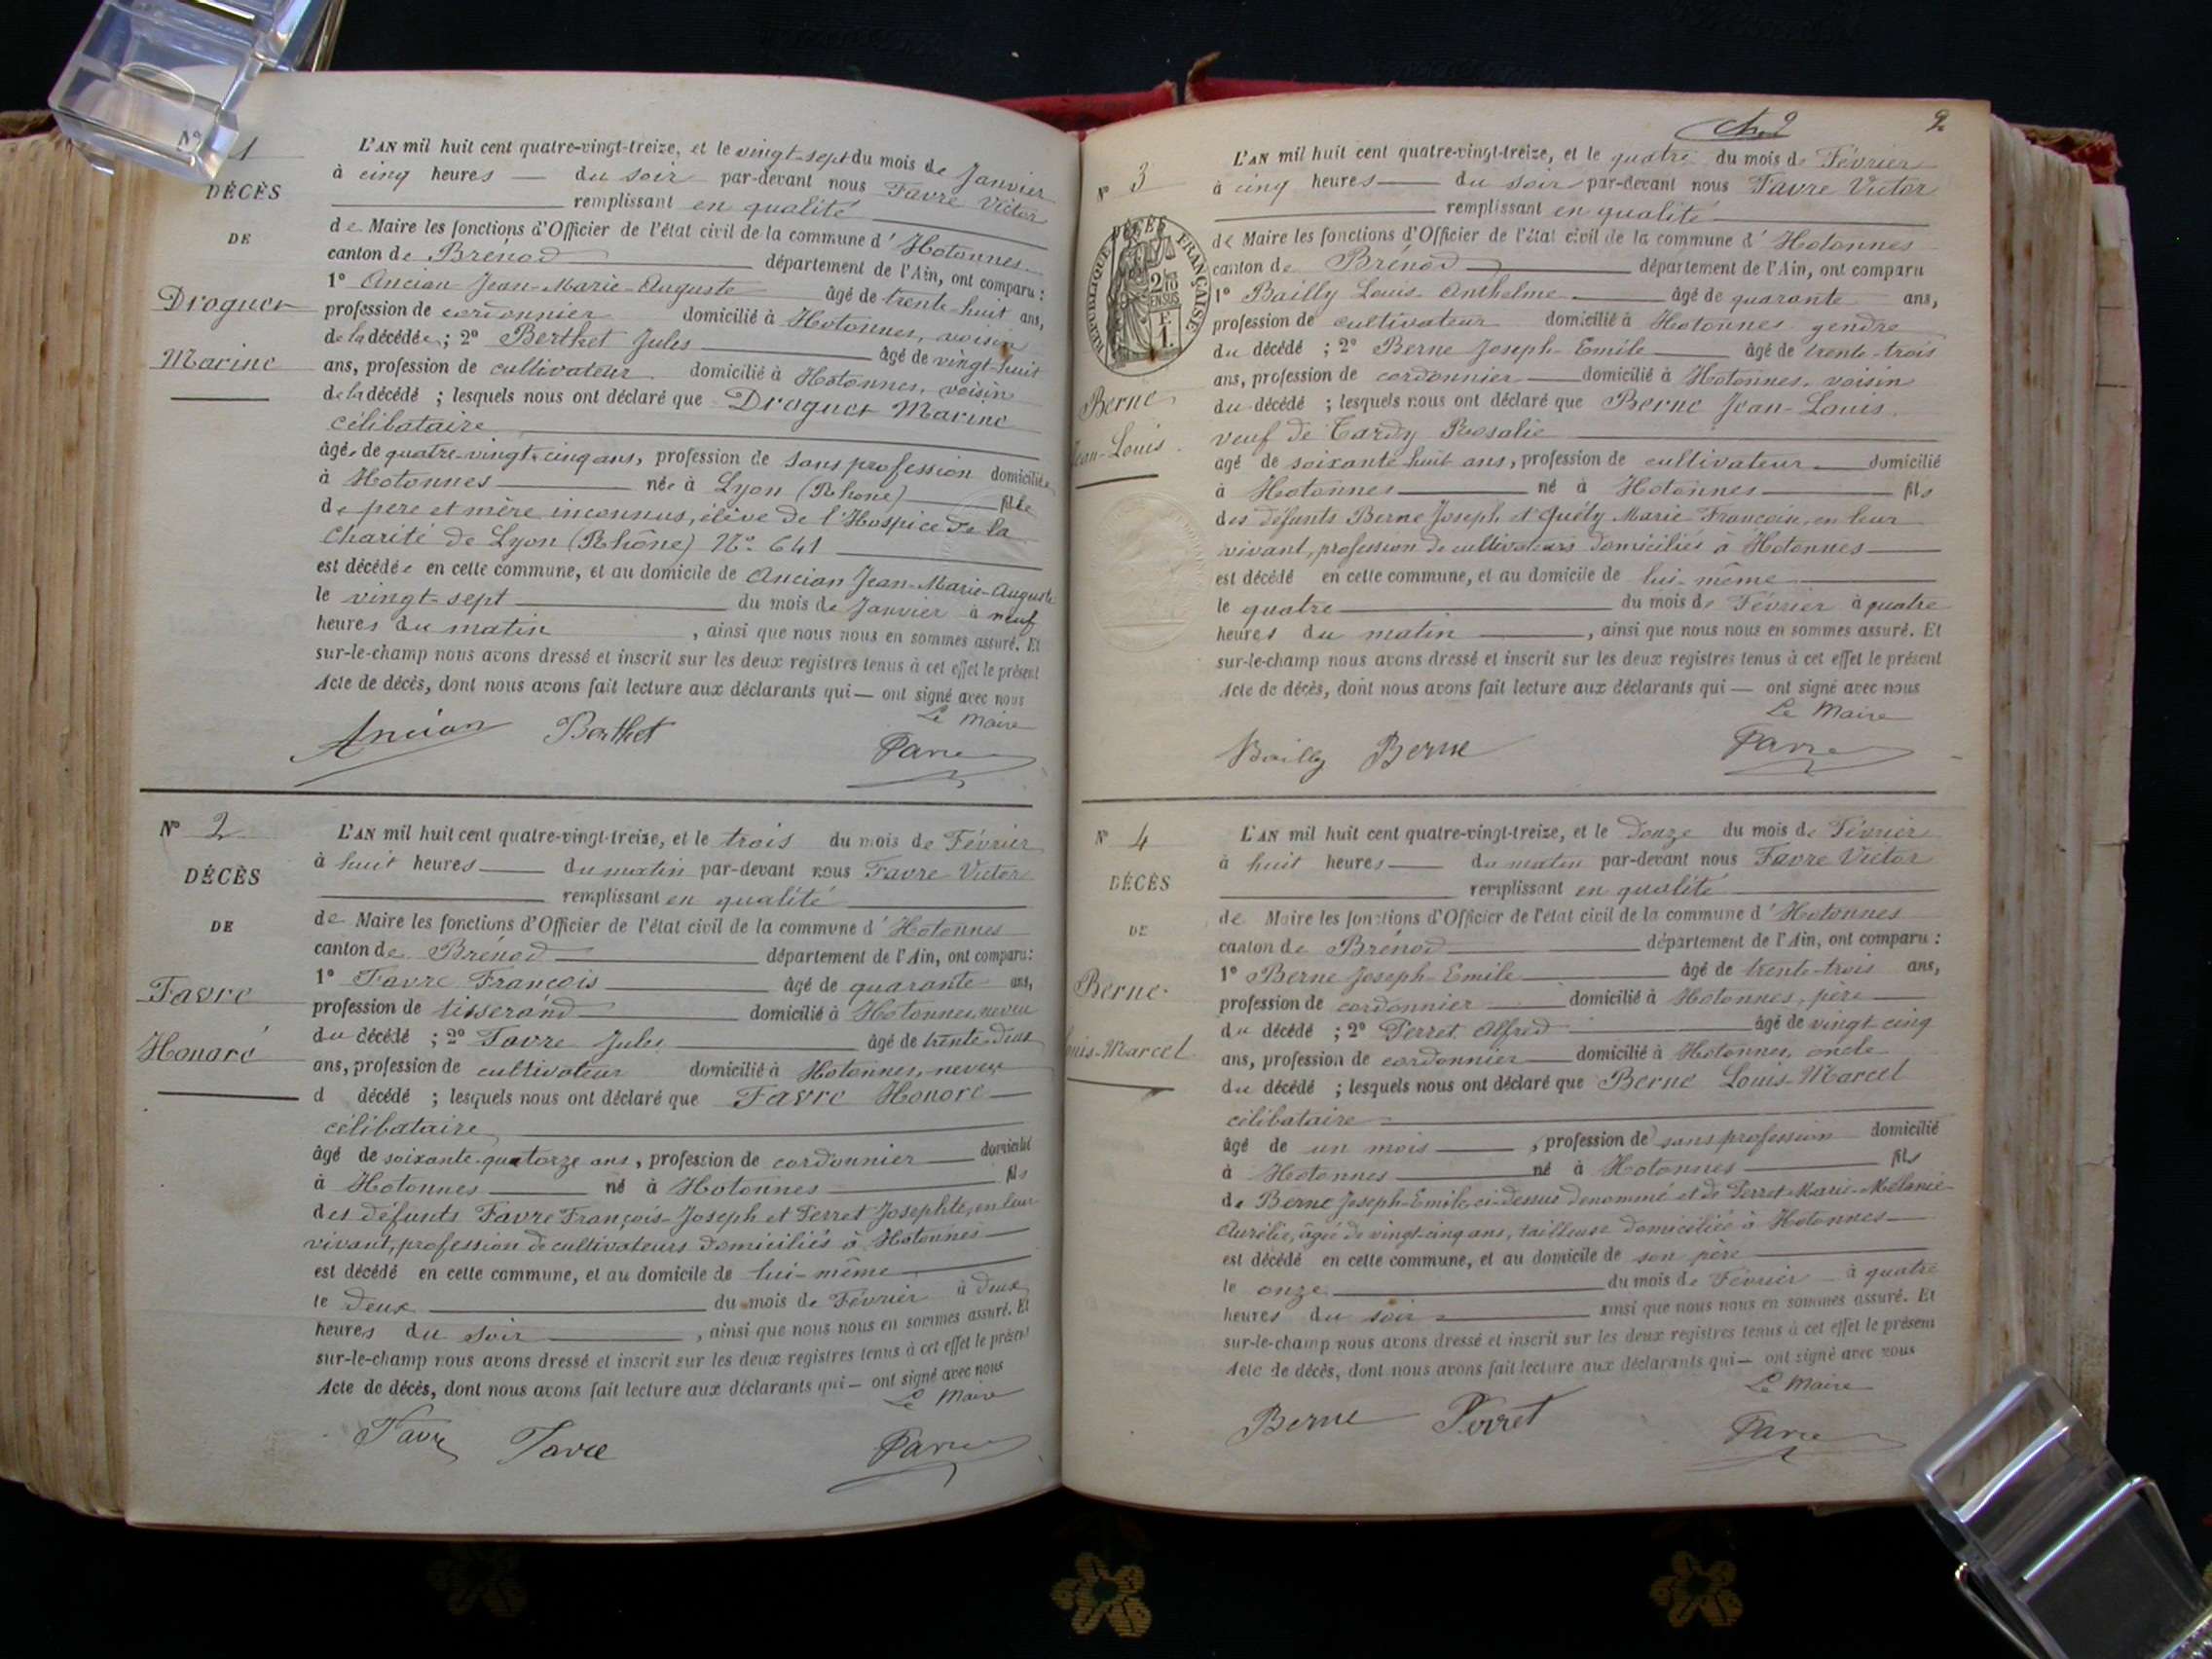 Nº 1
DÉCÈS
DE
Droguer
Marine
L'AN mil huit cent quatre-vingt-treize, et le vingt-sept du mois de Janvier
à cinq heures du soir par-devant nous Favre Victor
remplissant en qualité
de Maire les fonctions d'Officier de l'état civil de la commune d'Hotonnes
canton de Brénod département de l'Ain, ont comparu :
1º Ancian Jean-Marie-Auguste âgé de trente-huit ans,
profession de cordonnier domicilié à Hotonnes, voisin
de la décédée ; 2º Berthet Jules âgé de vingt-huit
ans, profession de cultivateur domicilié à Hotonnes, voisin
de la décédé ; lesquels nous ont déclaré que Droguer Marine
célibataire
âgée de quatre-vingt-cinq ans, profession de sans profession domiciliée
à Hotonnes née à Lyon (Rhône) fille
de père et mère inconnus, élève de l'Hospice de la
Charité de Lyon (Rhône) Nº 641
est décédée en cette commune, et au domicile de Ancian Jean-Marie-Auguste
le vingt-sept du mois de Janvier à neuf
heures du matin , ainsi que nous nous en sommes assuré. Et
sur-le-champ nous avons dressé et inscrit sur les deux registres tenus à cet effet le présent
Acte de décès, dont nous avons fait lecture aux déclarants qui — ont signé avec nous
Le Maire
Ancian Berthet Favre
Nº 2
DÉCÈS
DE
Favre
Honoré
L'AN mil huit cent quatre-vingt-treize, et le trois du mois de Février
à huit heures du matin par-devant nous Favre Victor
remplissant en qualité
de Maire les fonctions d'Officier de l'état civil de la commune d'Hotonnes
canton de Brénod département de l'Ain, ont comparu :
1º Favre François âgé de quarante ans,
profession de tisserand domicilié à Hotonnes, neveu
du décédé ; 2º Favre Jules âgé de trente-deux
ans, profession de cultivateur domicilié à Hotonnes, neveu
d décédé ; lesquels nous ont déclaré que Favre Honoré
célibataire
âgé de soixante-quatorze ans, profession de cordonnier domicilié
à Hotonnes né à Hotonnes fils
des défunts Favre François-Joseph et Perret Josephte, en leur
vivant, profession de cultivateurs domiciliés à Hotonnes
est décédé en cette commune, et au domicile de lui-même
le deux du mois de Février à deux
heures du soir , ainsi que nous nous en sommes assuré. Et
sur-le-champ nous avons dressé et inscrit sur les deux registres tenus à cet effet le présent
Acte de décès, dont nous avons fait lecture aux déclarants qui — ont signé avec nous
Le Maire
Favre Favre Favre
2
Nº 3
RÉPUBLIQUE FRANÇAISE
2/10 EN SUS
F. 1.
Berne
Jean-Louis
L'AN mil huit cent quatre-vingt-treize, et le quatre du mois de Février
à cinq heures du soir par-devant nous Favre Victor
remplissant en qualité
de Maire les fonctions d'Officier de l'état civil de la commune d'Hotonnes
canton de Brénod département de l'Ain, ont comparu
1º Bailly Louis Anthelme âgé de quarante ans,
profession de cultivateur domicilié à Hotonnes gendre
du décédé ; 2º Berne Joseph-Emile âgé de trente-trois
ans, profession de cordonnier domicilié à Hotonnes, voisin
du décédé ; lesquels nous ont déclaré que Berne Jean-Louis
veuf de Tardy Rosalie
âgé de soixante huit ans, profession de cultivateur domicilié
à Hotonnes né à Hotonnes fils
des défunts Berne Joseph et Marie Françoise, en leur
vivant, profession de cultivateurs domiciliés à Hotonnes
est décédé en cette commune, et au domicile de lui-même
le quatre du mois de Février à quatre
heures du matin , ainsi que nous nous en sommes assuré. Et
sur-le-champ nous avons dressé et inscrit sur les deux registres tenus à cet effet le présent
Acte de décès, dont nous avons fait lecture aux déclarants qui — ont signé avec nous
Le Maire
Bailly Berne Favre
Nº 4
DÉCÈS
DE
Berne
Louis-Marcel
L'AN mil huit cent quatre-vingt-treize, et le douze du mois de Février
à huit heures du matin par-devant nous Favre Victor
remplissant en qualité
de Maire les fonctions d'Officier de l'état civil de la commune d'Hotonnes
canton de Brénod département de l'Ain, ont comparu :
1º Berne Joseph-Emile âgé de trente-trois ans,
profession de cordonnier domicilié à Hotonnes, père
du décédé ; 2º Perret Alfred âgé de vingt-cinq
ans, profession de cordonnier domicilié à Hotonnes, oncle
du décédé ; lesquels nous ont déclaré que Berne Louis-Marcel
célibataire
âgé de un mois , profession de sans profession domicilié
à Hotonnes né à Hotonnes fils
de Berne Joseph-Emile ci-dessus dénommé et de Perret Marie-Mélanie
Aurélie, âgée de vingt-cinq ans, tailleuse domiciliée à Hotonnes
est décédé en cette commune, et au domicile de son père
le onze du mois de Février à quatre
heures du soir ainsi que nous nous en sommes assuré. Et
sur-le-champ nous avons dressé et inscrit sur les deux registres tenus à cet effet le présent
Acte de décès, dont nous avons fait lecture aux déclarants qui — ont signé avec nous
Le Maire
Berne Perret Favre